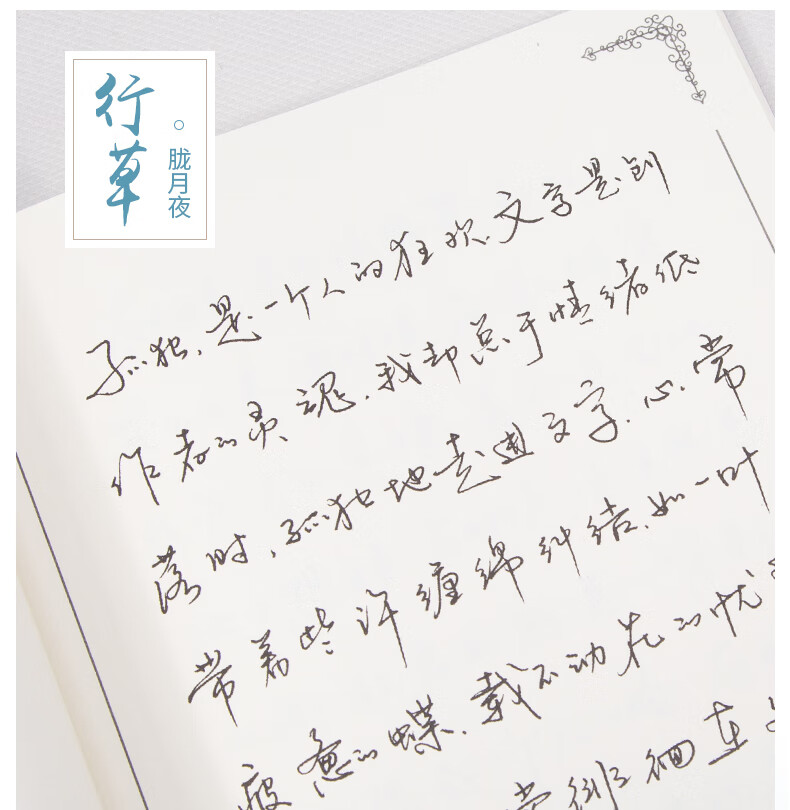 行草
胧月夜
孤独，是一个人的狂欢，文字是创
作者的灵魂，我却总于情绪低
落时，孤独地走进文字，心，常
带着些许缠绵纠结，如一叶
疲惫的蝶，载不动花的忧
常徘徊在